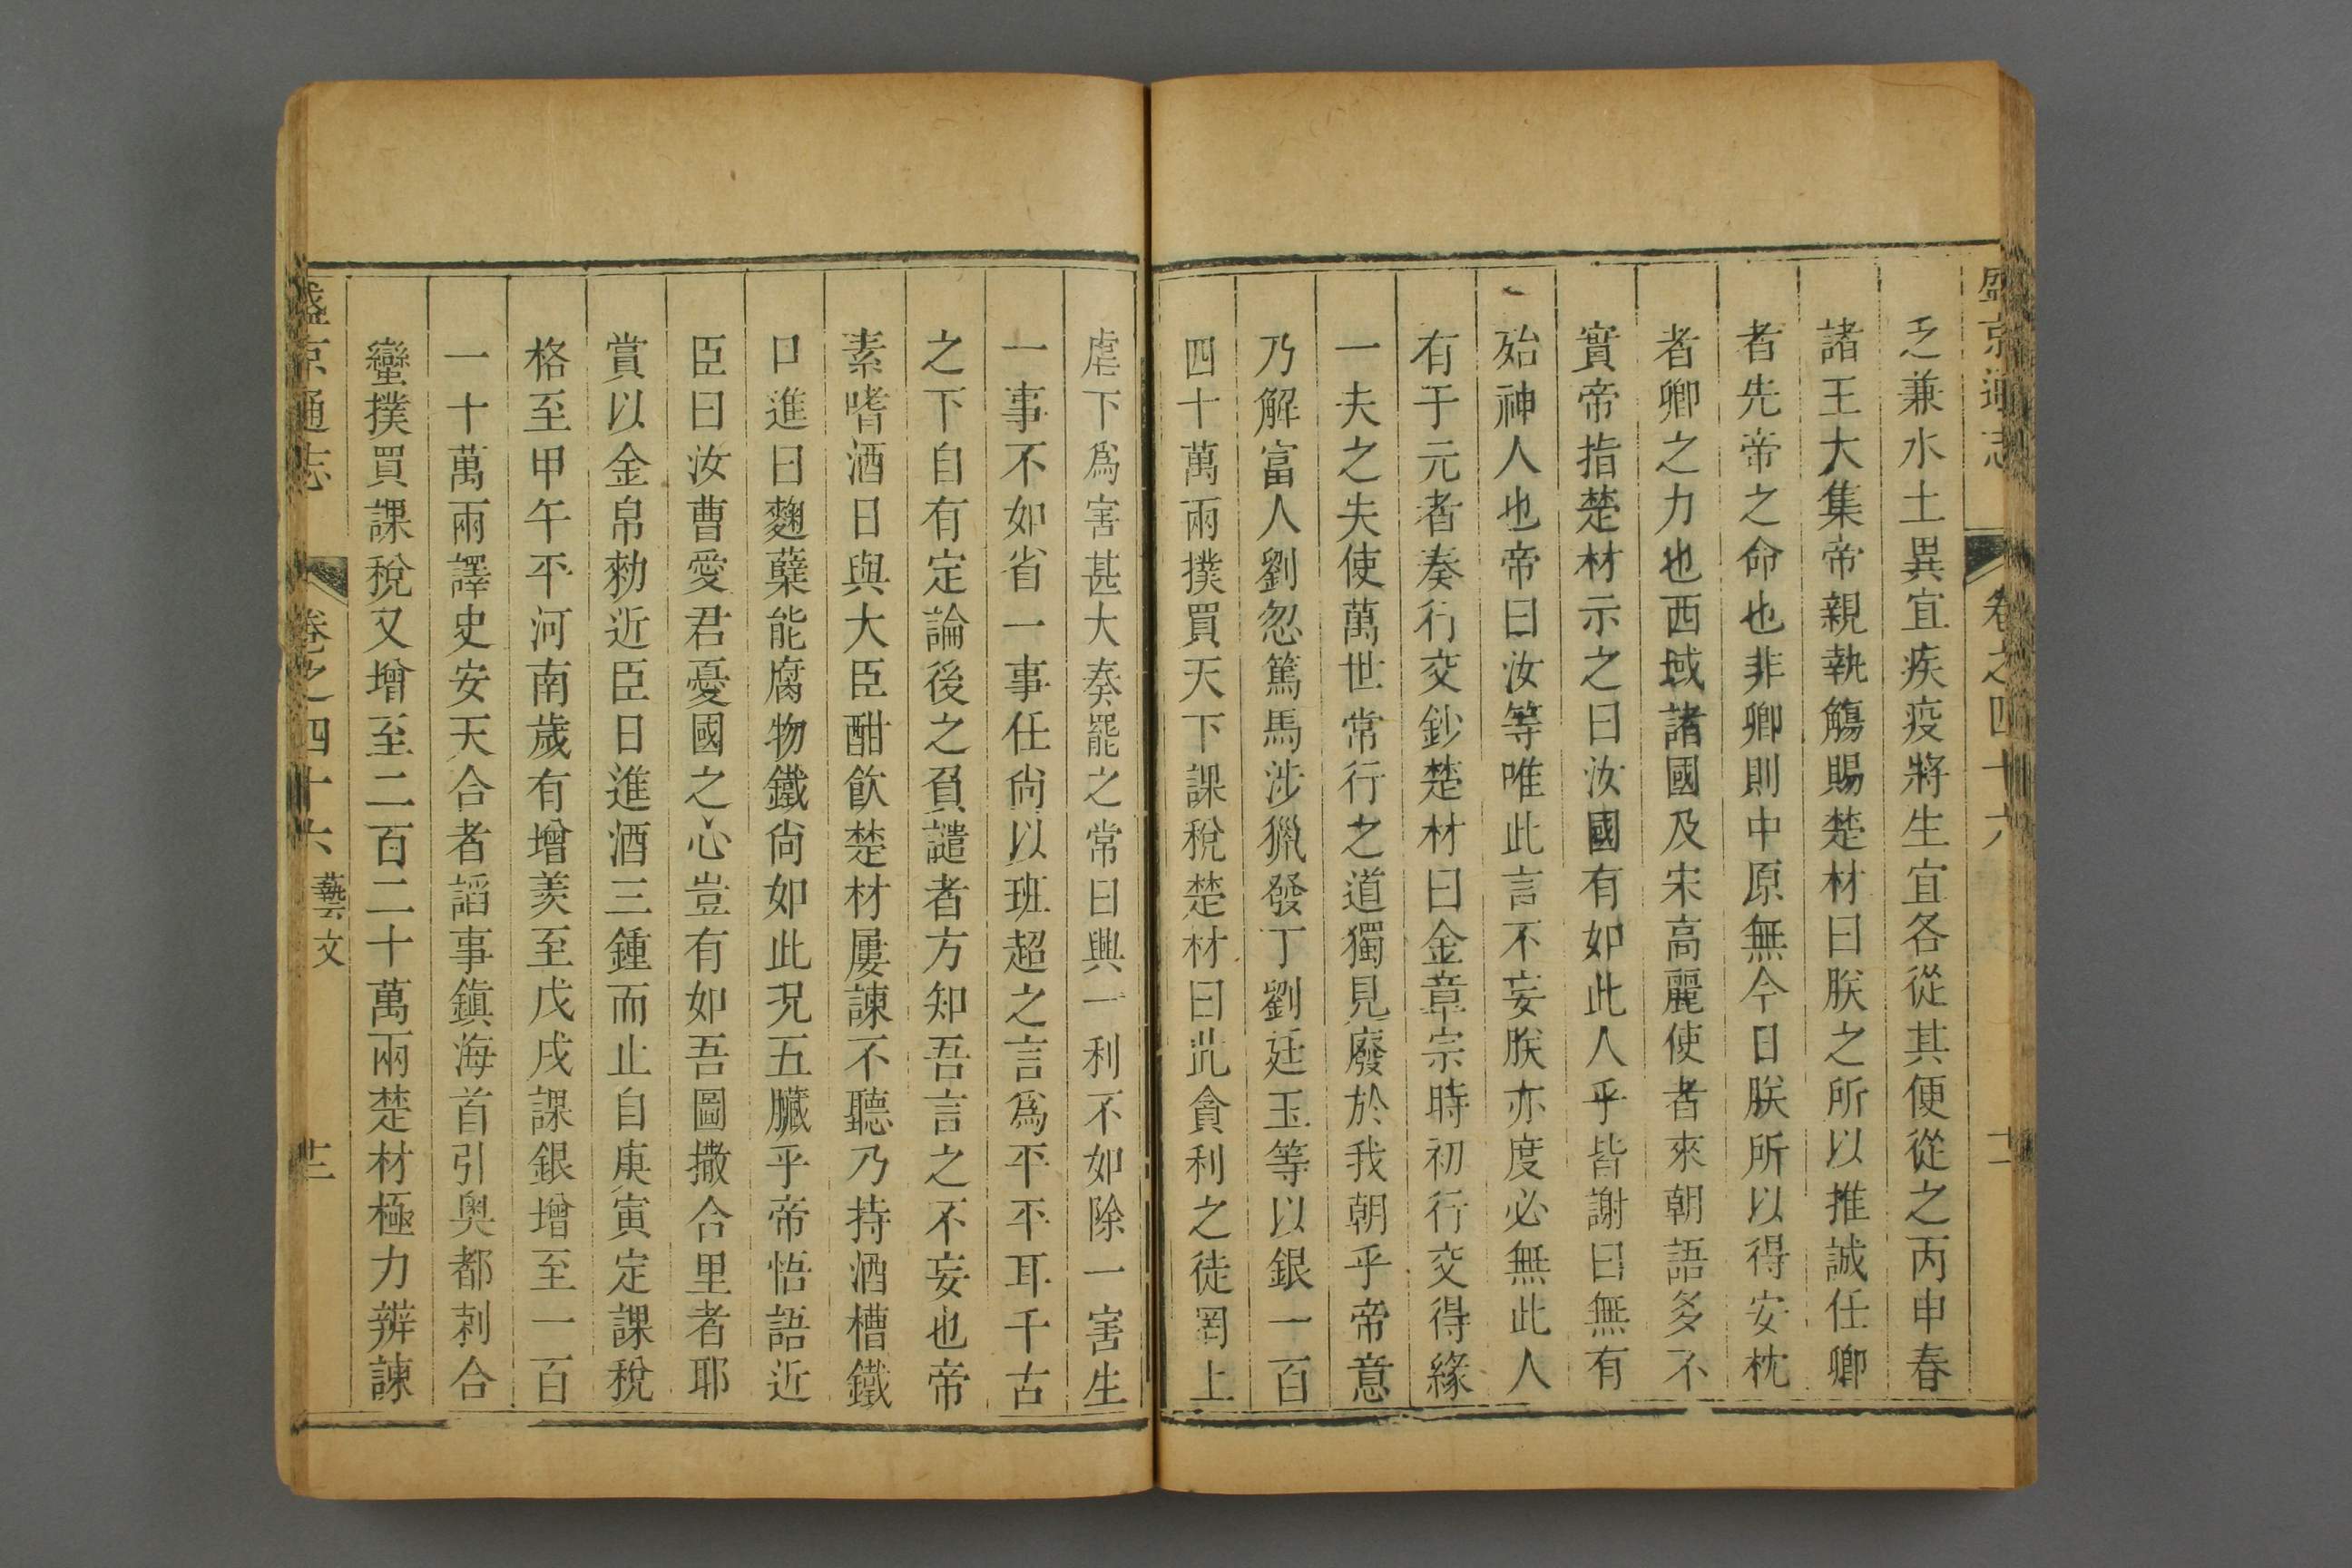 盛京通志 卷之四十六 十二
乏兼水土異宜疾疫將生宜各從其便從之丙申春
諸王大集帝親執觴賜楚材曰朕之所以推誠任卿
者先帝之命也非卿則中原無今日朕所以得安枕
者卿之力也西域諸國及宋高麗使者來朝語多不
實帝指楚材示之曰汝國有如此人乎皆謝曰無有
殆神人也帝曰汝等唯此言不妄朕亦度必無此人
有于元者奏行交鈔楚材曰金章宗時初行交得緣
一夫之失使萬世常行之道獨見廢於我朝乎帝意
乃解富人劉忽篤馬涉獵發丁劉廷玉等以銀一百
四十萬兩撲買天下課稅楚材曰此貪利之徒罔上
虐下爲害甚大奏罷之常曰興一利不如除一害生
一事不如省一事任尙以班超之言爲平平耳千古
之下自有定論後之負譴者方知吾言之不妄也帝
素嗜酒日與大臣酣飲楚材屢諫不聽乃持酒槽鐵
口進曰麴櫱能腐物鐵尙如此況五臟乎帝悟語近
臣曰汝曹愛君憂國之心豈有如吾圖撒合里者耶
賞以金帛勑近臣日進酒三鍾而止自庚寅定課稅
格至甲午平河南歲有增羨至戊戌課銀增至一百
一十萬兩譯史安天合者謟事鎮海首引奧都剌合
蠻撲買課稅又增至二百二十萬兩楚材極力辨諫
盛京通志 卷之四十六 藝文 十三